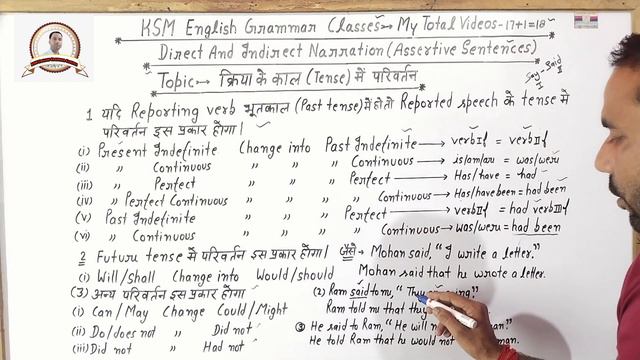 KSM English Grammar Classes → My Total Videos - 17+1=18
Direct And Indirect Narration (Assertive Sentences)
Topic → क्रिया के काल (Tense) में परिवर्तन
Say - Said
I II
1 यदि Reporting verb भूतकाल (Past tense) में हो तो Reported speech के tense में
परिवर्तन इस प्रकार होगा।
(i) Present Indefinite Change into Past Indefinite → verb I = verb II
(ii) " Continuous " " " Continuous → is/am/are = was/were
(iii) " Perfect " " " Perfect → Has/have = had
(iv) " Perfect Continuous " " " Continuous → Has/have been = had been
(v) Past Indefinite " " " Perfect → verb II = had verb III
(vi) " Continuous " " " Continuous → was/were = had been
2 Future tense में परिवर्तन इस प्रकार होगा। जैसे → Mohan said, "I write a letter."
(i) Will/Shall Change into Would/Should Mohan said that he wrote a letter.
(3) अन्य परिवर्तन इस प्रकार होगा (2) Ram said to me, "They
(i) Can/May Change Could/Might Ram told me that they
(ii) Do/does not " Did not (3) He said to Ram, "He will
(iii) Did not " Had not He told Ram that he would not